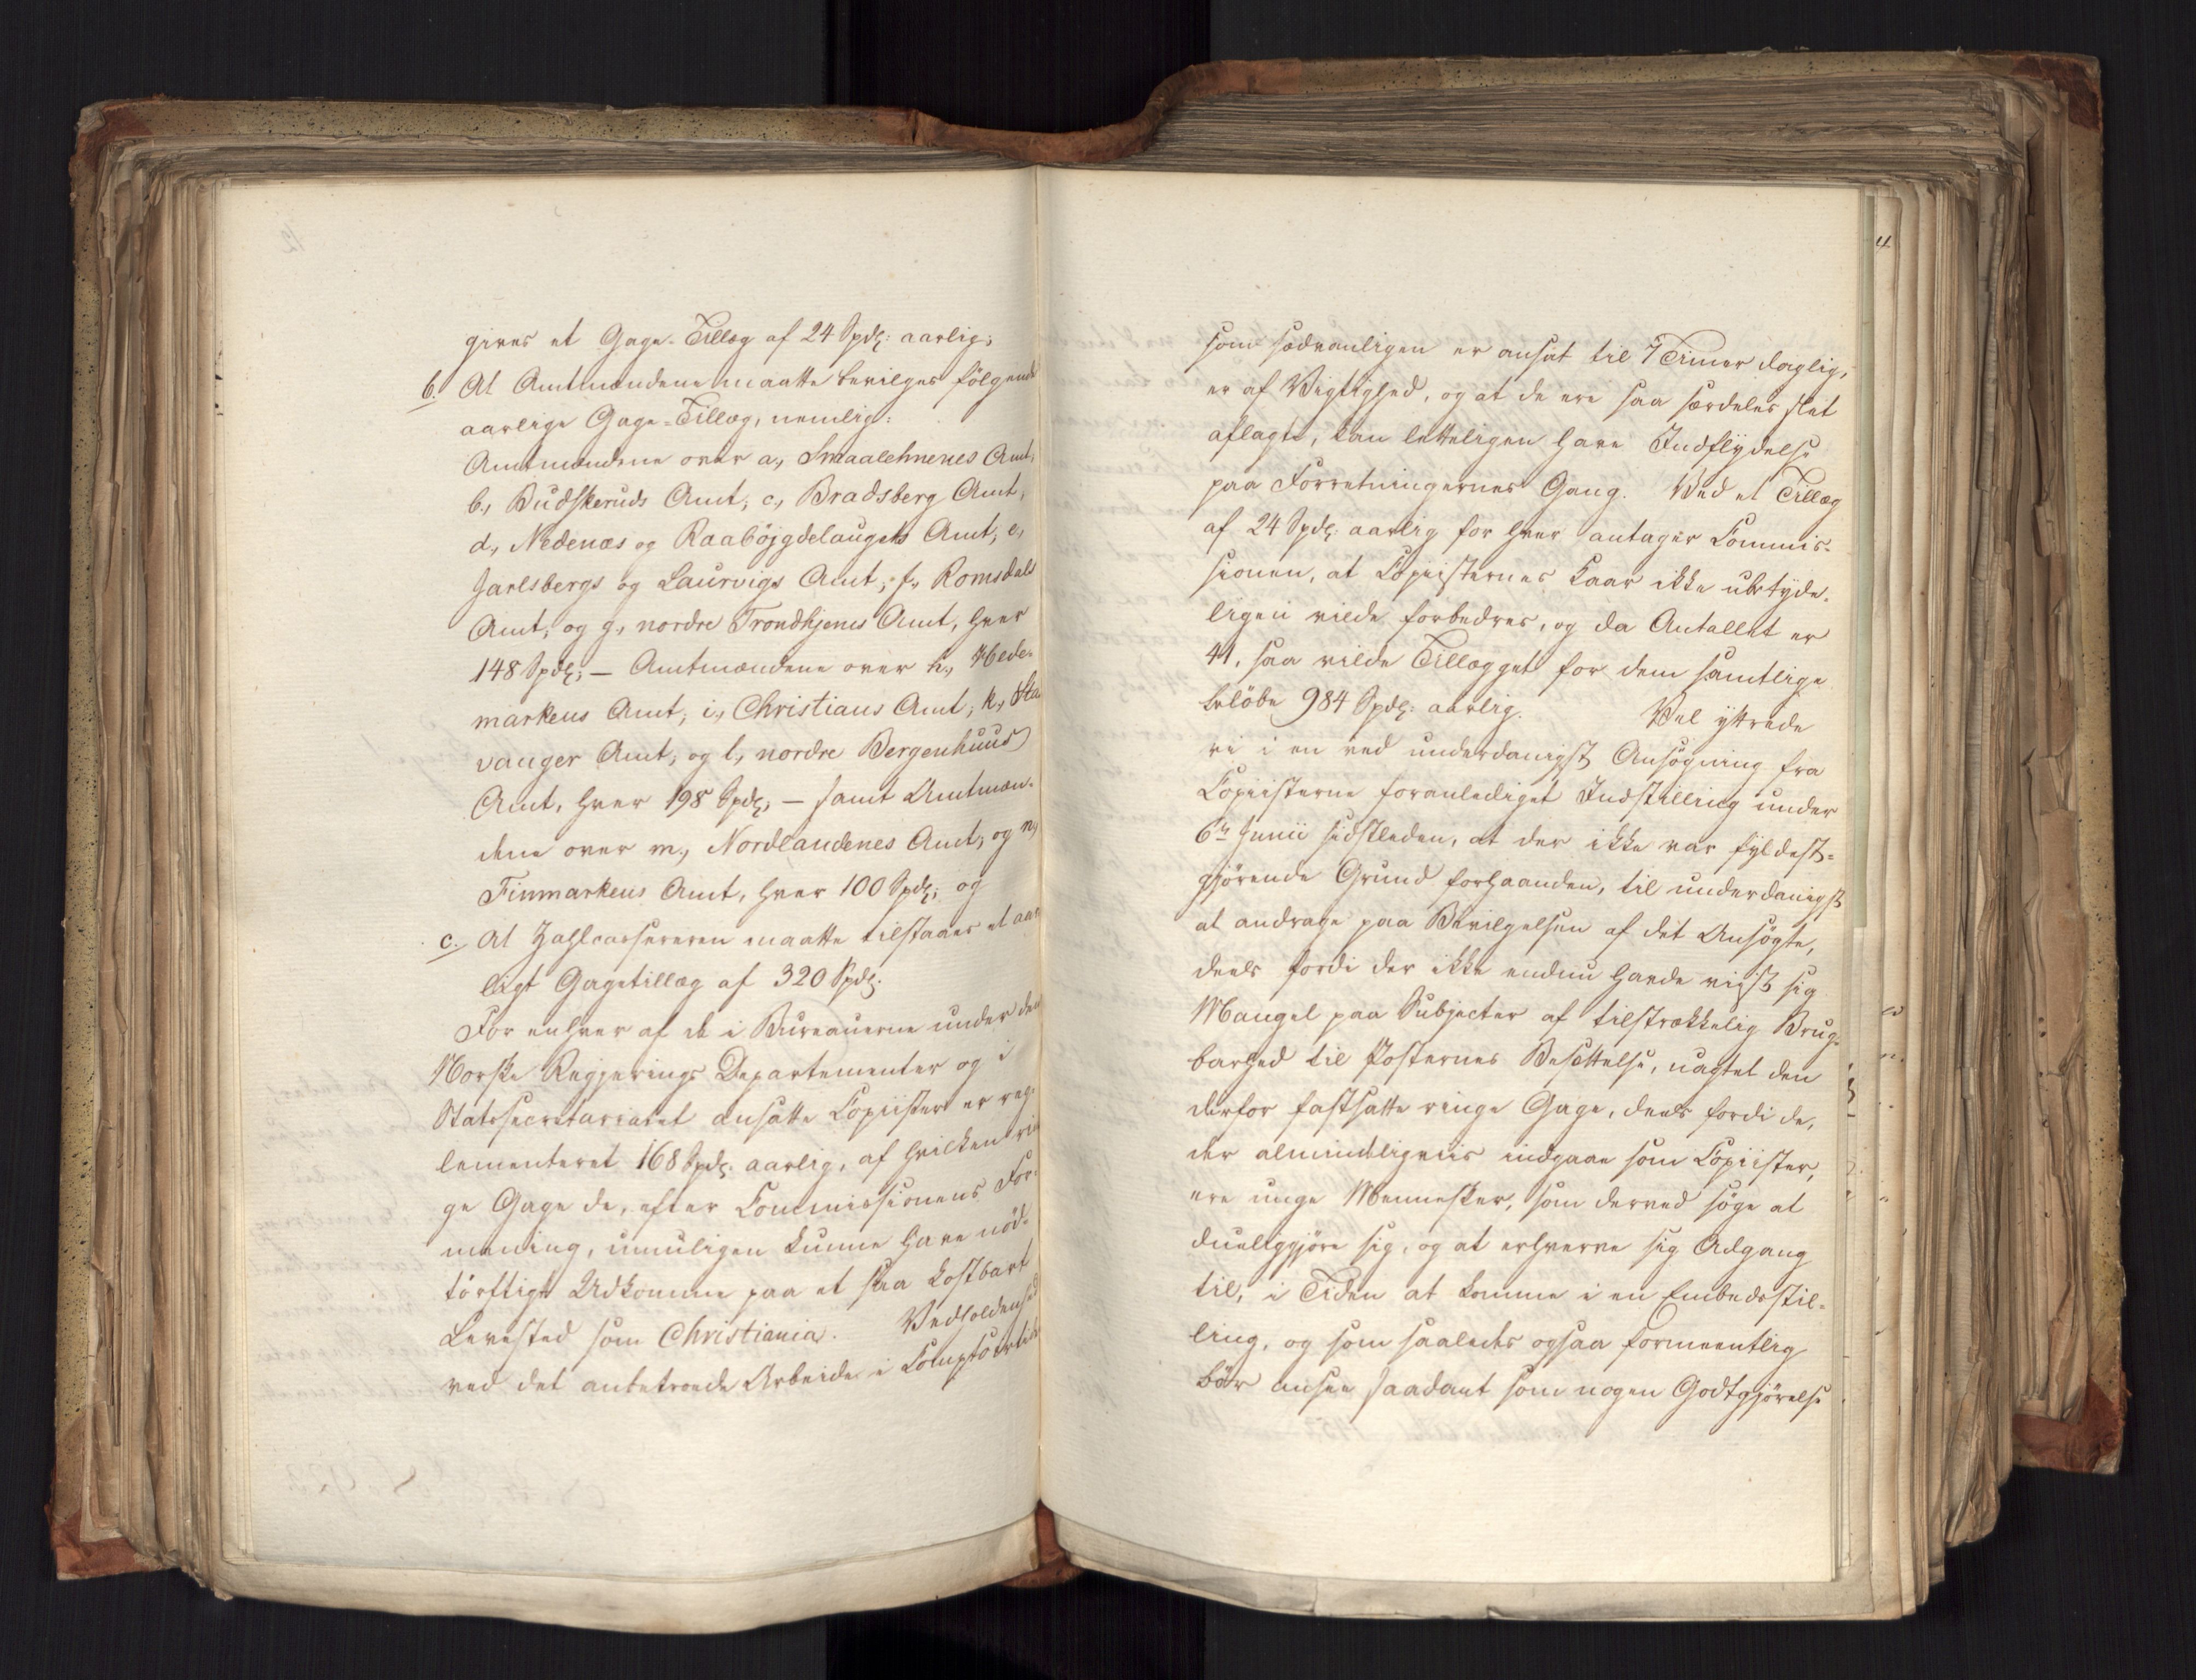 gives et Gage-Tillæg af 24 Spdlr: aarlig;
b. At Amtmændene maatte bevilges følgende
aarlige Gage-Tillæg, nemlig:
Amtmændene over a., Smaalehnenes Amt,
b., Budskeruds Amt; c., Bradsberg Amt,
d., Nedenæs og Raabøjgdelaugets Amt; e.,
Jarlsbergs og Laurvigs Amt; f., Romsdals
Amt, og g., nordre Trondhjems Amt, hver
148 Spdlr; — Amtmændene over h., Hede-
markens Amt; i., Christians Amt; k., Sta
vanger Amt, og l., nordre Bergenhuus
Amt, hver 198 Spdlr; — samt Amtmæn-
dene over m., Nordlandenes Amt; og n.,
Finmarkens Amt, hver 100 Spdlr; og
c. At Zahlcassereren maatte tilstaaes et aar
ligt Gagetillæg af 320 Spdlr.
For enhver af de i Bureauerne under den
Norske Regjerings Departementer og i
Statssecretariatet ansatte Copiister er reg-
lementeret 168 Spdlr. aarlig, af hvilken rin
ge Gage de, efter Commissionens For-
mening, umuligen kunne have nød-
tørftigt Udkomme paa et saa kostbart
Levested som Christiania. Vedholdenhed
ved det anbetroede Arbeide i Comptoirtiden
4
som sædvanligen er ansat til 7 Timer daglig,
er af Vigtighed, og at de ere saa særdeles slet
aflagte, kan letteligen have Indflydelse
paa Forretningernes Gang. Ved et Tillæg
af 24 Spdlr: aarlig for hver antager Commis-
sionen, at Copiisternes Kaar ikke ubetyde-
ligen vilde forbedres, og da Antallet er
41, saa vilde Tillægget for dem samtlige
beløbe 984 Spdlr: aarlig. Vel yttrede
vi i en ved underdanigst Ansøgning fra
Copiisterne foranlediget Indstilling under
6te Junii sidstleden, at der ikke var fyldest-
gjørende Grund forhaanden, til underdanigst
at andrage paa Bevilgelsen af det Ansøgte,
deels fordi der ikke endnu havde viist sig
Mangel paa Subjecter af tilstrækkelig Brug-
barhed til Posternes Besættelse, uagtet den
derfor fastsatte ringe Gage, deels fordi de,
der almindeligviis indgaae som Copiister,
ere unge Mennesker, som derved søge at
dueliggjøre sig, og at erhverve sig Adgang
til, i Tiden at komme i en Embedsstil-
ling, og som saaledes ogsaa formeentlig
bør ansee saadant som nogen Godtgjørelse